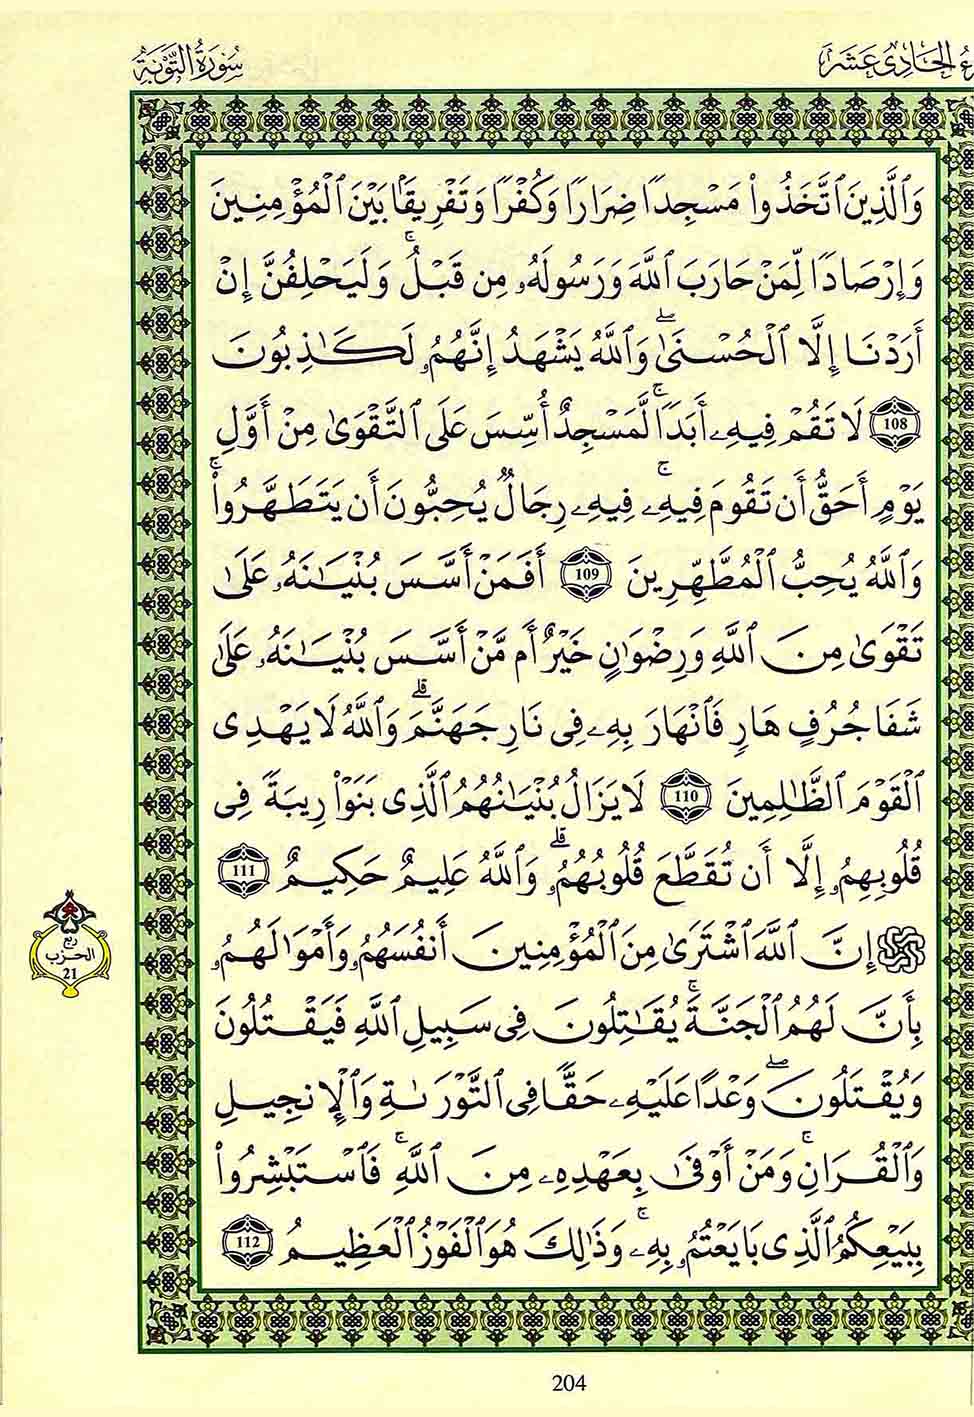 الْحَادِى عَشَرَ
سُورَةُ التَّوْبَةِ
وَالَّذِينَ ٱتَّخَذُواْ مَسْجِدًا ضِرَارًا وَكُفْرًا وَتَفْرِيقًا بَيْنَ ٱلْمُؤْمِنِينَ
وَإِرْصَادًا لِّمَنْ حَارَبَ ٱللَّهَ وَرَسُولَهُۥ مِن قَبْلُۚ وَلَيَحْلِفُنَّ إِنْ
أَرَدْنَا إِلَّا ٱلْحُسْنَىٰۖ وَٱللَّهُ يَشْهَدُ إِنَّهُمُۥ لَكَٰذِبُونَ
108 لَا تَقُمْ فِيهِۦ أَبَدًاۚ لَّمَسْجِدٌ أُسِّسَ عَلَى ٱلتَّقْوَىٰ مِنْ أَوَّلِ
يَوْمٍ أَحَقُّ أَن تَقُومَ فِيهِۦۚ فِيهِۦ رِجَالٌ يُحِبُّونَ أَن يَتَطَهَّرُواْۚ
وَٱللَّهُ يُحِبُّ ٱلْمُطَّهِّرِينَ 109 أَفَمَنْ أَسَّسَ بُنْيَٰنَهُۥ عَلَىٰ
تَقْوَىٰ مِنَ ٱللَّهِ وَرِضْوَانٍ خَيْرٌ أَم مَّنْ أَسَّسَ بُنْيَٰنَهُۥ عَلَىٰ
شَفَا جُرُفٍ هَارٍ فَٱنْهَارَ بِهِۦ فِى نَارِ جَهَنَّمَۗ وَٱللَّهُ لَا يَهْدِى
ٱلْقَوْمَ ٱلظَّٰلِمِينَ 110 لَا يَزَالُ بُنْيَٰنُهُمُ ٱلَّذِى بَنَوْاْ رِيبَةً فِى
قُلُوبِهِمُۥ إِلَّا أَن تُقَطَّعَ قُلُوبُهُمُۥۗ وَٱللَّهُ عَلِيمٌ حَكِيمٌ 111
۞ إِنَّ ٱللَّهَ ٱشْتَرَىٰ مِنَ ٱلْمُؤْمِنِينَ أَنفُسَهُمُۥ وَأَمْوَالَهُمُۥ
بِأَنَّ لَهُمُ ٱلْجَنَّةَۚ يُقَٰتِلُونَ فِى سَبِيلِ ٱللَّهِ فَيَقْتُلُونَ
وَيُقْتَلُونَۖ وَعْدًا عَلَيْهِۦ حَقًّا فِى ٱلتَّوْرَىٰةِ وَٱلْإِنجِيلِ
وَٱلْقُرَانِۚ وَمَنْ أَوْفَىٰ بِعَهْدِهِۦ مِنَ ٱللَّهِۚ فَٱسْتَبْشِرُواْ
بِبَيْعِكُمُ ٱلَّذِى بَايَعْتُمُۥ بِهِۦۚ وَذَٰلِكَ هُوَ ٱلْفَوْزُ ٱلْعَظِيمُ 112
ربع
الحزب
21
204